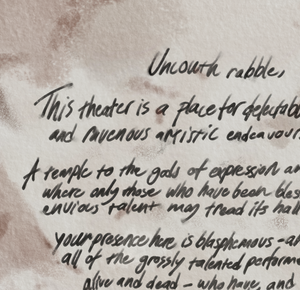 Uncouth rabble,
This theater is a place for delectab
and ravenous artistic endeavour
A temple to the gods of expression an
where only those who have been bles
envious talent may tread its hal
your presence here is blasphemous - a
all of the grossly talented performe
alive and dead - who have, and